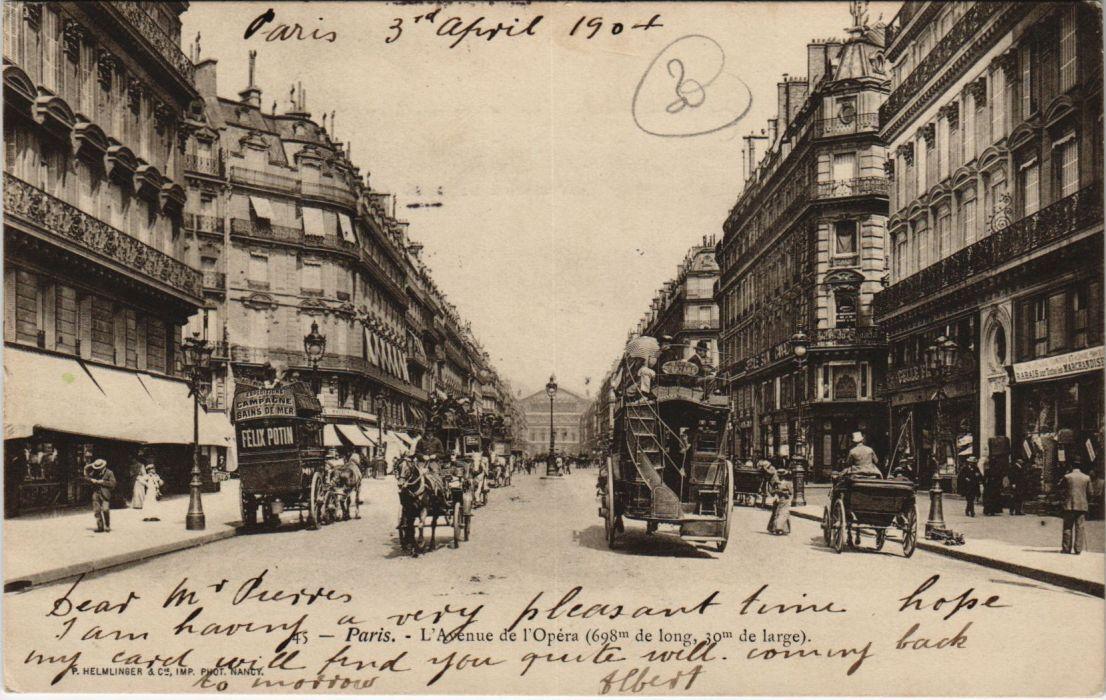 Paris 3rd April 1904
30
EXPEDITIONS
CAMPAGNE
BAINS DE MER
FELIX POTIN
RABAIS sur Toutes les MARCHANDISES
Dear Mr Pierres
I am having a very pleasant time hope
45 — Paris. - L'Avenue de l'Opéra (698m de long, 30m de large).
my card will find you quite well. coming back
P. HELMLINGER & Cie, IMP. PHOT. NANCY.
to morrow Albert